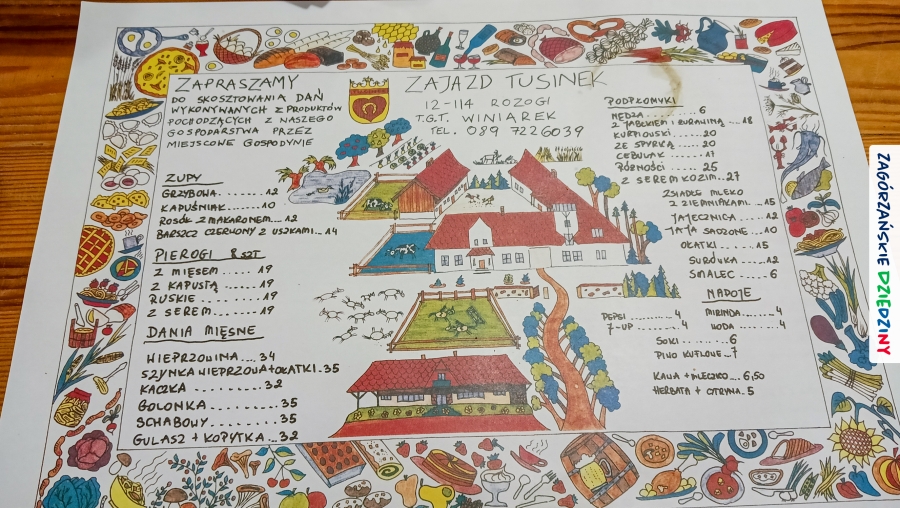 ZAPRASZAMY
DO SKOSZTOWANIA DAŃ
WYKONYWANYCH Z PRODUKTÓW
POCHODZĄCYCH Z NASZEGO
GOSPODARSTWA PRZEZ
MIEJSCOWE GOSPODYNIE
ZAJAZD TUSINEK
12-114 ROZOGI
T.G.T. WINIAREK
TEL. 089 7226039
ZUPY
GRZYBOWA........12
KAPUŚNIAK.......10
ROSÓŁ Z MAKARONEM...12
BARSZCZ CZERWONY Z USZKAMI..14
PIEROGI 8 SZT
Z MIĘSEM.....19
Z KAPUSTĄ......19
RUSKIE........19
Z SEREM......19
DANIA MIĘSNE
WIEPRZOWINA...34
SZYNKA WIEPRZOWA+OKATKI.35
KACZKA........32
GOLONKA........35
SCHABOWY.......35
GULASZ + KOPYTKA...32
PODPŁOMYKI
NĘDZA..........6
Z JABŁKIEM I ŻURAWINĄ..18
KURPIOWSKI.....20
ZE SPYRKĄ.....20
CEBULAK.....17
RÓŻNOŚCI....25
Z SEREM KOZIM..27
ZSIADŁE MLEKO
Z ZIEMNIAKAMI....15
JAJECZNICA....12
JAJA SADZONE..10
OKATKI......15
SURÓWKA......12
SMALEC.......6
NAPOJE
PEPSI.........4
7-UP.........4
MIRINDA......4
WODA.......4
SOKI........6
PIWO KUFLOWE..7
KAWA + MLECZKO...6,50
HERBATA + CYTRYNA.5
ZAGÓRZAŃSKIE DZIEDZINY